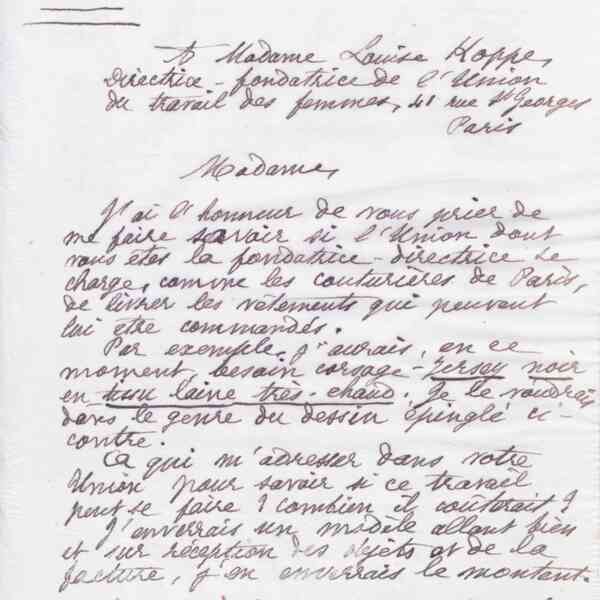 A Madame Louise Koppe,
Directrice-fondatrice de l'Union
du travail des femmes, 41 rue St Georges
Paris
Madame,
J'ai l'honneur de vous prier de
me faire savoir si l'Union dont
vous êtes la fondatrice-directrice se
charge, comme les couturières de Paris,
de livrer les vêtements qui peuvent
lui être commandés.
Par exemple, j'aurais, en ce
moment, besoin corsage-Jersey noir
en tissu laine très-chaud. Je le voudrais
dans le genre du dessin épinglé ci-
contre.
A qui m'adresser dans votre
Union pour savoir si ce travail
peut se faire ? combien il coûterait ?
J'enverrais un modèle allant bien
et sur réception des objets et de la
facture, j'en enverrais le montant.